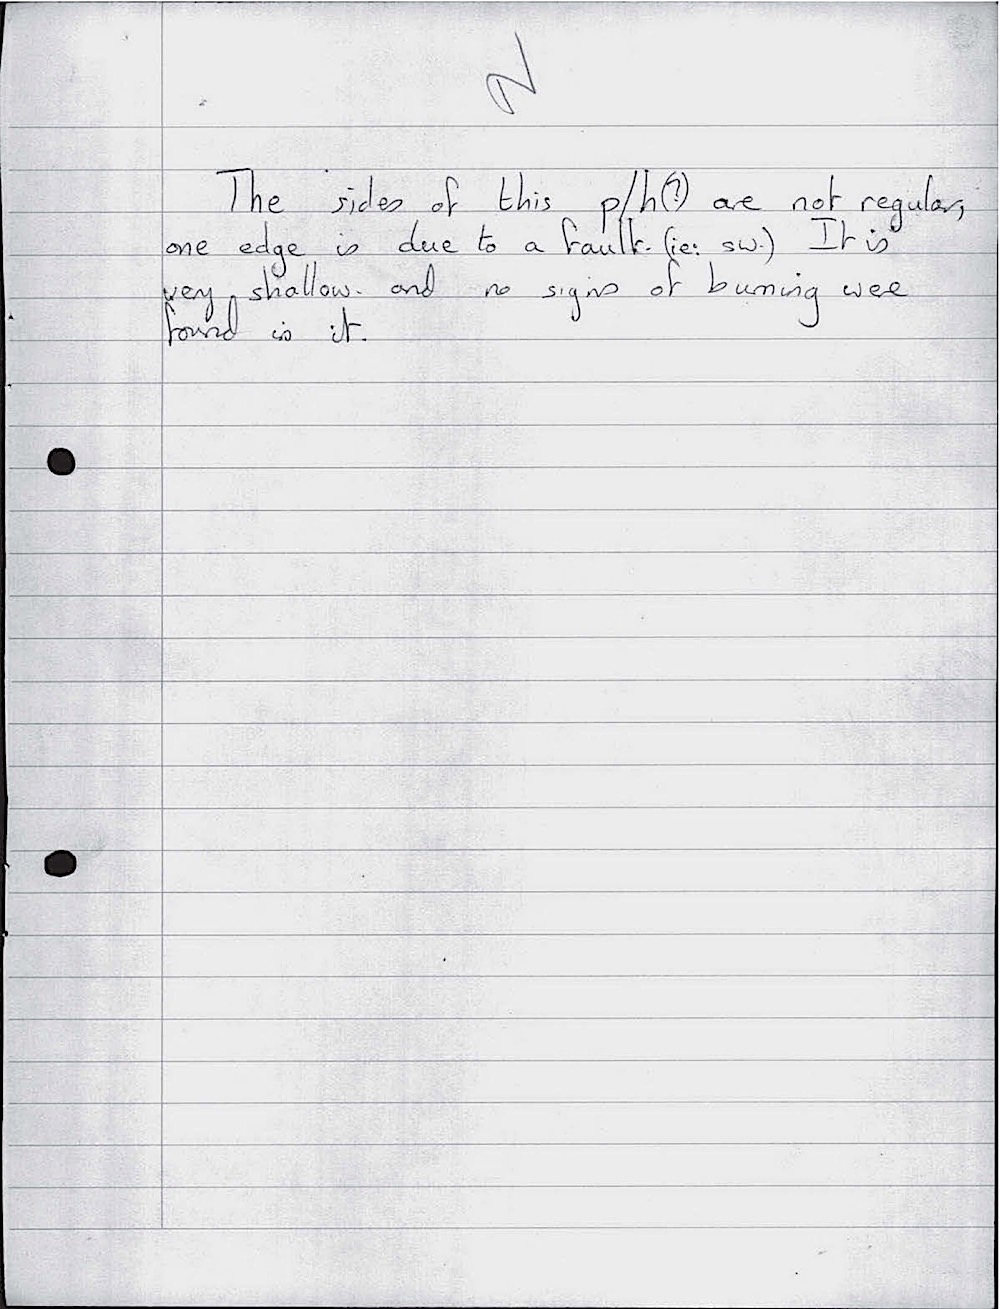 The sides of this p/h(?) are not regular,
one edge is due to a fault. (ie: sw.) It is
very shallow. and no signs of burning wee
found is it.